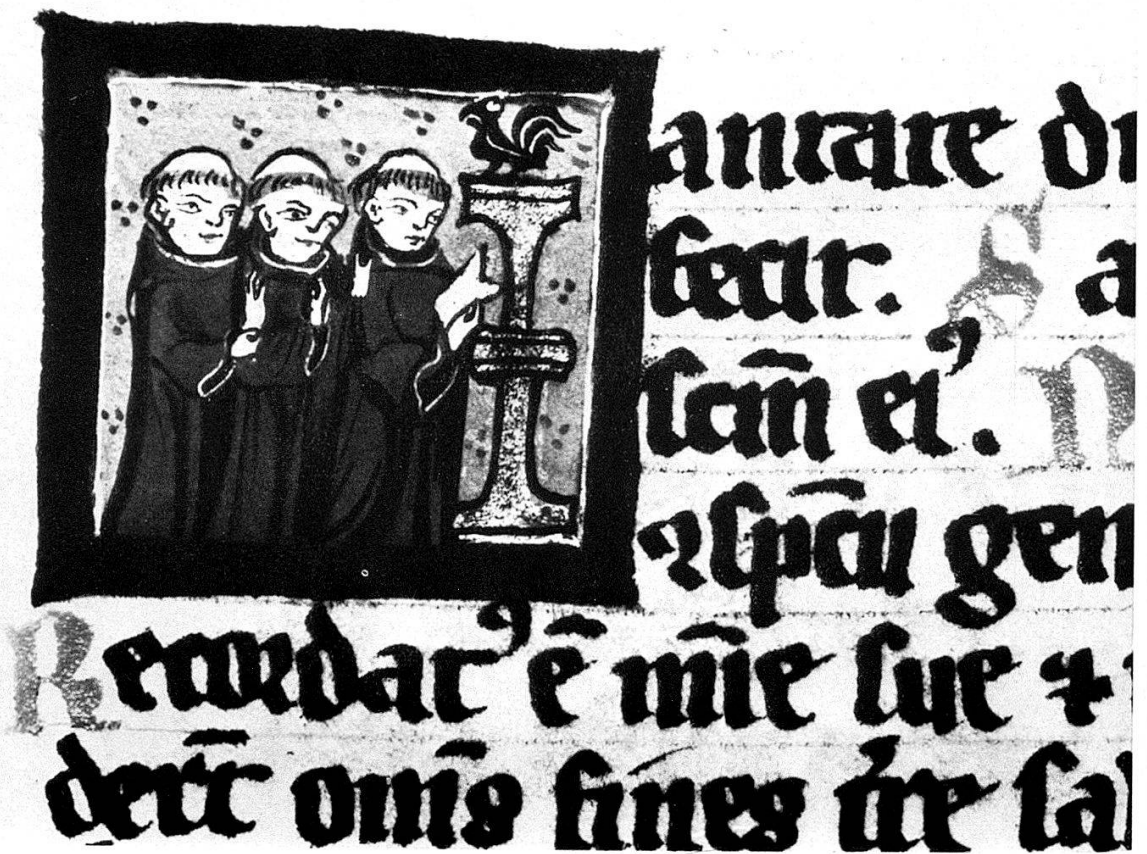 antate dn
fecit. S a
scm̄ eiꝰ. N
ꝯspc̄u gen
Recordatꝰ ē mīe sue ⁊
dert̄ om̄s fines tre sal